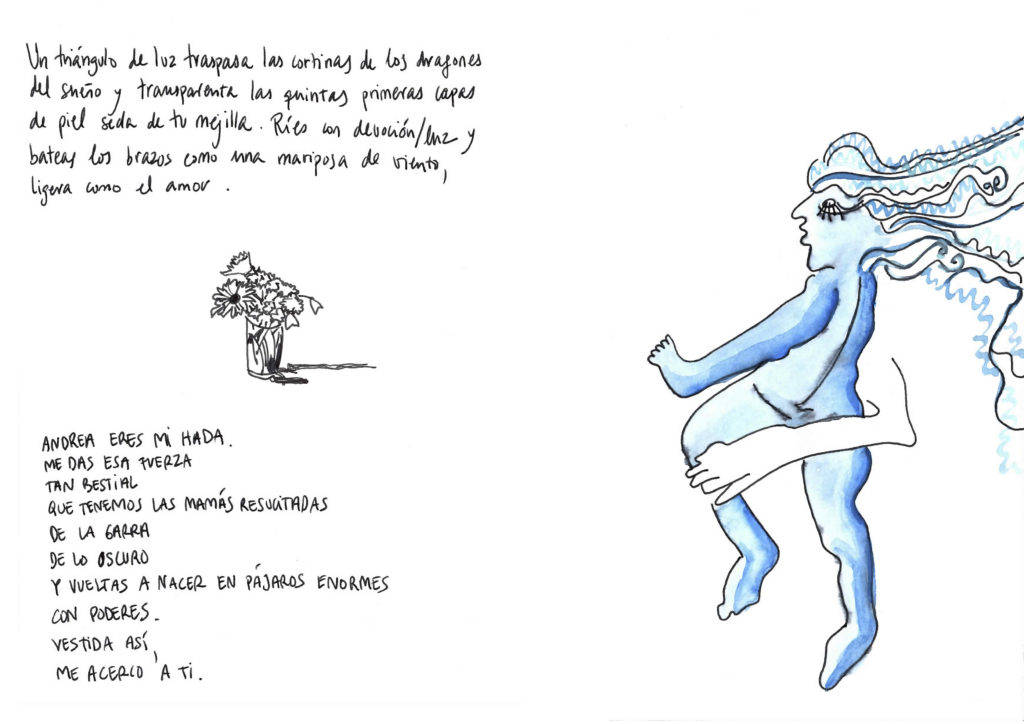 Un triángulo de luz traspasa las cortinas de los dragones
del sueño y transparenta las quintas primeras capas
de piel seda de tu mejilla. Ríes con devoción/luz y
bateas los brazos como una mariposa de viento,
ligera como el amor.
ANDREA ERES MI HADA.
ME DAS ESA FUERZA
TAN BESTIAL
QUE TENEMOS LAS MAMÁS RESUCITADAS
DE LA GARRA
DE LO OSCURO
Y VUELTAS A NACER EN PÁJAROS ENORMES
CON PODERES.
VESTIDA ASÍ,
ME ACERCO A TI.